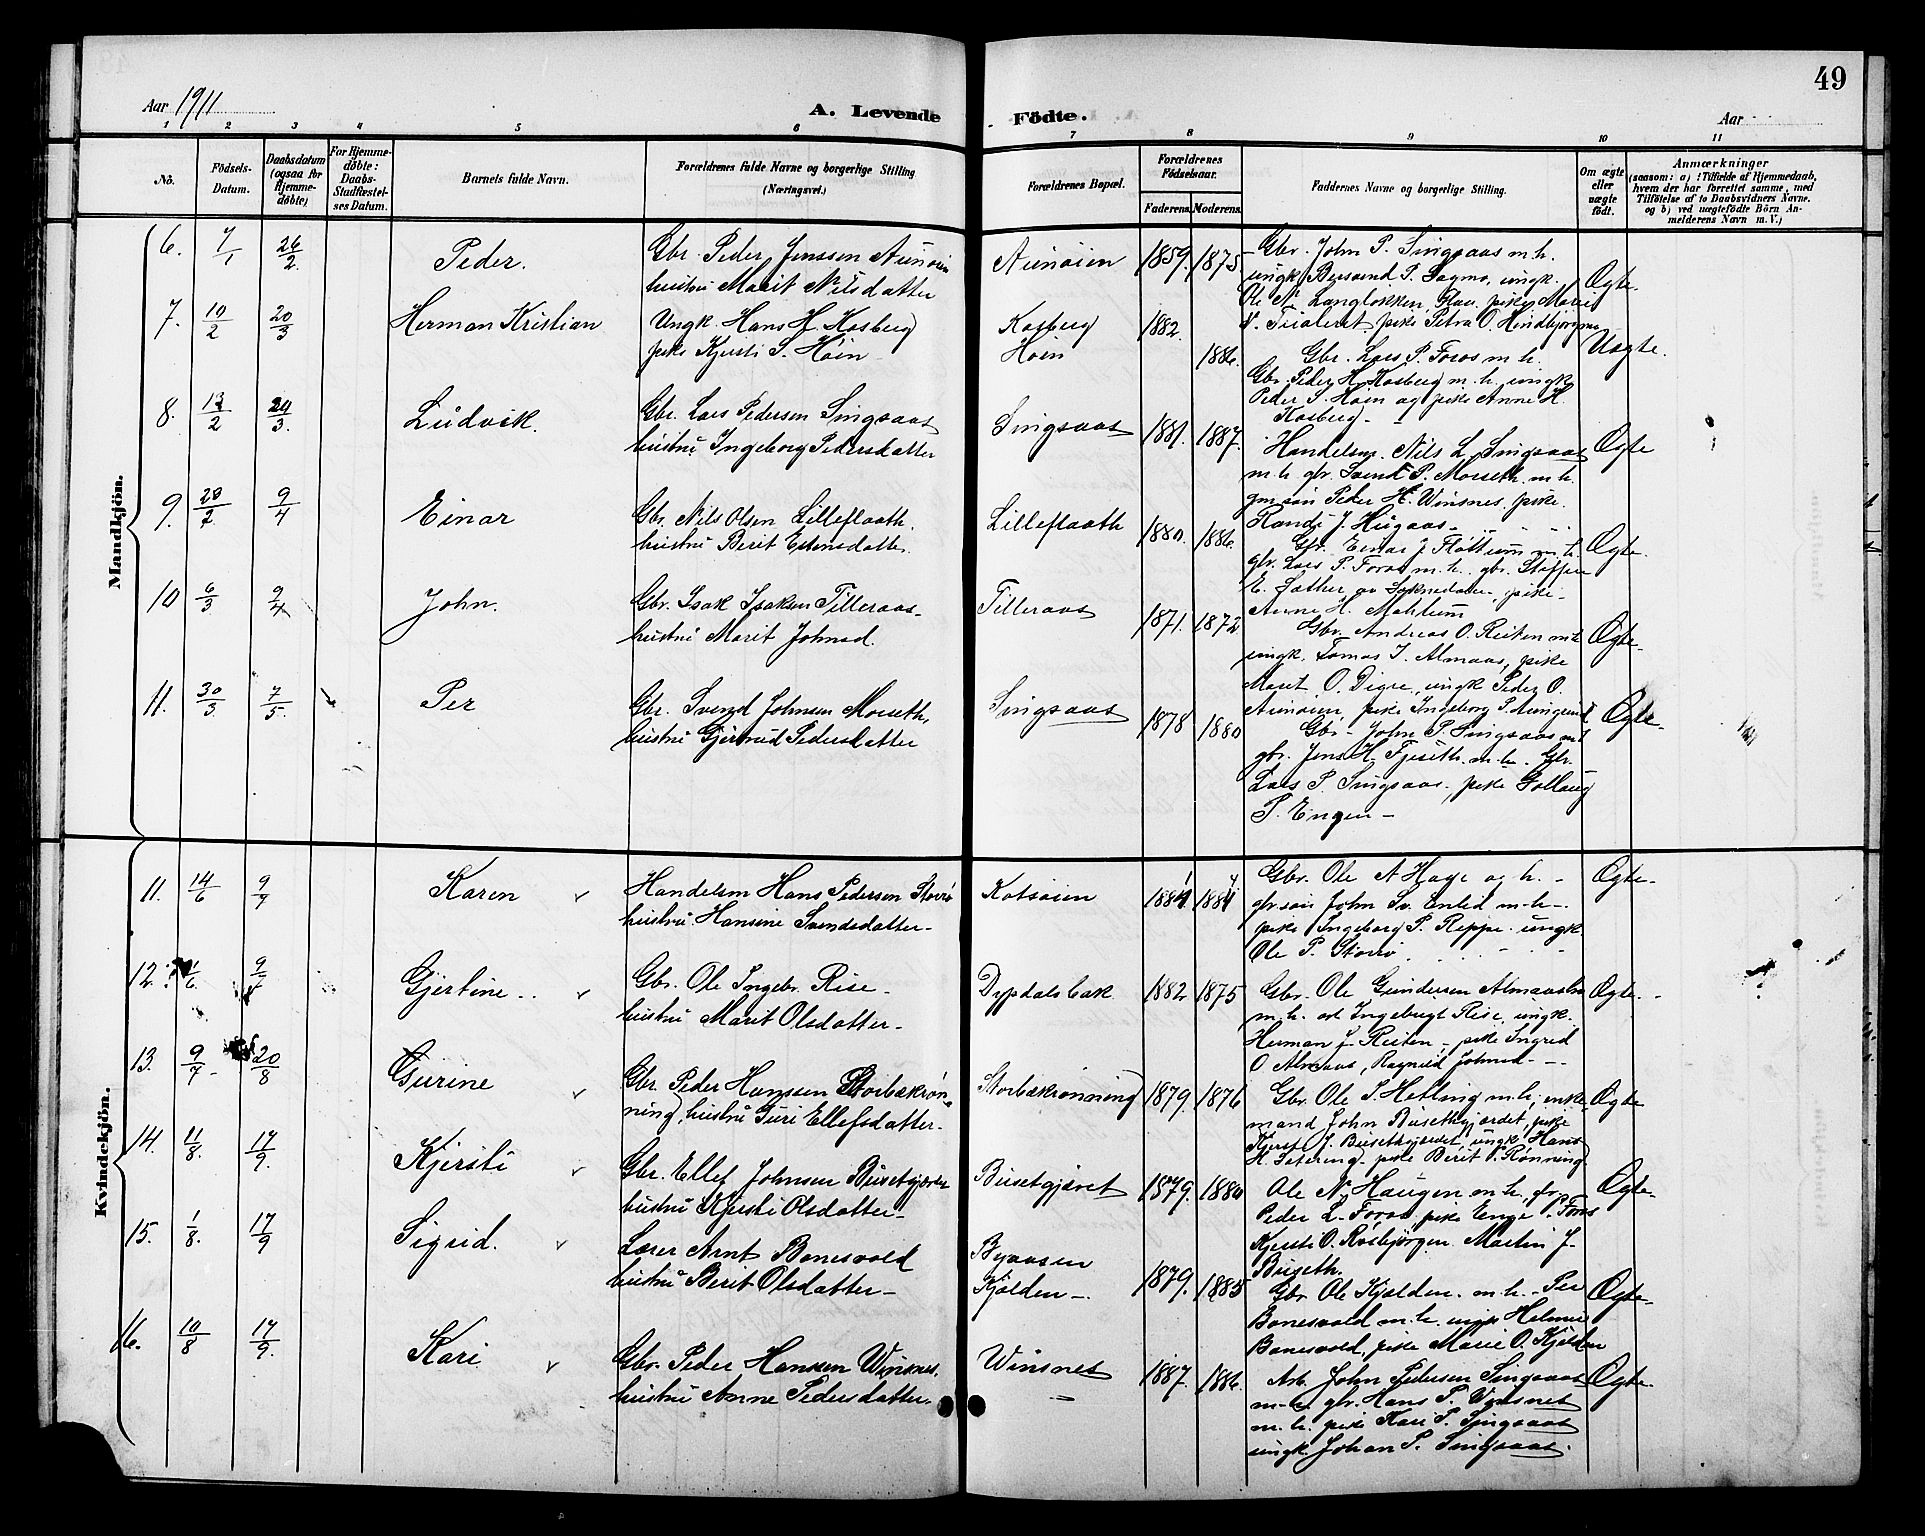 49
Aar 1911
A. Levende Födte.
Aar
1 2 3 4 5 6 7 8 9 10 11
No.
Födsels-Datum.
Daabsdatum (ogsaa for Hjemme-døbte)
For Hjemme-døbte: Daabs-Stadfæstel-ses Datum.
Barnets fulde Navn.
Forældrenes fulde Navne og borgerlige Stilling (Næringsvei.)
Forældrenes Bopæl.
Forældrenes Födselsaar.
Faderens. Moderens.
Faddernes Navne og borgerlige Stilling.
Om ægte eller uægte født.
Anmærkninger
(saasom: a) i Tilfælde af Hjemmedaab,
hvem der har forrettet samme, med
Tilføielse af to Daabsvidners Navne.
og b) ved uægtefødte Börn An-
melderens Navn m. V.)
Mandkjön.
6. 7/1 26/2 Peder.
Gbr. Peder Jenssen Aunøien
hustru Marit Nilsdatter
Aunøien 1859. 1875
Gbr. John P. Singsaas m. h.
ungk. P. Sagmo, ungk.
Ole N. Langlokken, pike Marit
Ægte.
7. 10/2 20/3 Herman Kristian
Ungk. Hans H. Kosberg
pike Kjersti S. Høin
Kosberg
Høin
1882. 1886.
N. pike Petra O. Hindbjørgmo
Gbr. Lars P. Foros m. h.
Gbr. Peder H. Kosberg m. h. ungk
Peder S. Høin og pike Anne H.
Kosberg -
Uægte.
8. 12/2 20/3. Ludvik.
Gbr. Lars Pedersen Singsaas
hustru Ingeborg Pedersdatter
Singsaas 1881. 1887.
Handelsm. Nils L. Singsaas
m. h. gbr Svend P. Morseth m. h.
gm. søn Peder H. Winsnes, pike
Randi J. Hugaas -
Ægte
9. 28/2 9/4 Einar
Gbr. Nils Olsen Lilleflaath.
hustru Berit Estensdatter.
Lilleflaath 1880. 1886.
Gbr. Einar J. Fløttum m. h.
gbr. Lars P. Foros m. h. gbr. Steffen
E. av Soknedalen, pike
Anne H.
Ægte.
10 6/3 9/4 John.
Gbr. Isak Isaksen Tilleraas
hustru Marit Johnsd.
Tilleraas 1871. 1872
Gbr. Andreas O. Reiten m. h.
ungk. Tomas I. Almaas, pike
Marit O. Digre, ungk Peder O.
Aunøien, pike Ingeborg P.
Ægte.
11. 30/3 7/5. Per
Gbr. Svend Johnsen Morseth,
hustru Gjertrud Pedersdatter
Singsaas 1878 1880
Gbr. John P. Singsaas m. h.
gbr. Jens H. Fjeseth m. h. Gbr.
Lars P. Singsaas, pike Gollaug
P. Engen -
Ægte.
Kvindekjön.
11. 14/6 9/7 Karen
Handelsm Hans Pedersen Storrø
hustru Hansine Svendsdatter
Kotsøien 1884. 1884
Gbr. Ole A Hage og h. -
gbr. søn John Sv. Enlid m. h.
pike Ingeborg P. Rippe. ungk
Ole P. Storrø
Ægte.
12. /6 9/7 Gjertine
Gbr. Ole Ingebr. Rise
hustru Marit Olsdatter
Dypdalsbak 1882 1875
Gbr. Ole Gundersen
m. h. Ingebrigt Rise, ungk.
Herman J. Reiten, pike Ingrid
O Almaas, Ragnhild Johnsd -
Ægte.
13. 9/7 20/8 Gurine
Gbr. Peder Hanssen Storbækrøn-
ning, hustru Guri Ellefsdatter
Storbækrønning 1879. 1876
Gbr. Ole S. Hetling m. h, enke
mand John Busethgjærdet, pike
Kjersti J. Busethgjærdet, ungk Hans
H. Sætering, pike Berit P. Rønning
Ægte
14. 11/8. 17/9. Kjersti
Gbr. Ellef Johnsen Busetgjæret
hustru Kjersti Olsdatter
Busetgjæret 1879. 1880
Ole N. Haugen m. h, gbr.
Peder L. Foros, pike Enge P. Foros
Kjersti O. Rosbjørgen. Martin J.
Buseth.
Ægte.
15. 1/8. 17/9 Sigrid.
Lærer Arnt Bonesvold
hustru Berit Olsdatter
Byaasen
Kjølden -. 1879. 1885
Gbr Ole Kjølden m. h. Per
Bonesvold m. h. ungk Helmer
Bonesvold, pike Marie O. Kjølden
Ægte.
16. 10/8 17/9. Kari
Gbr. Peder Hansen Winsnes.
hustru Anne Pedersdatter.
Winsnes 1887. 1886.
Arb. John Pedersen Singsaas
m. h. gbr. Hans P. Winsnes
m. h. pike Kari P. Singsaas
ungk. Johan P. Singsaas.
Ægte.